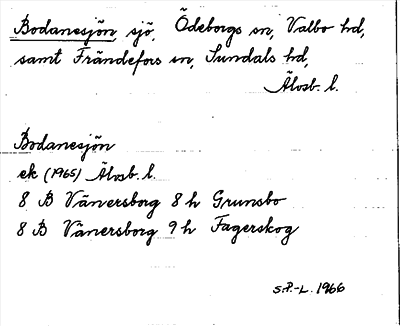 Bodanesjön, sjö, Ödeborgs sn, Valbo hd,
samt Frändefors sn, Sundals hd,
Älvsb. l.
Bodanesjön
ek (1965) Älvsb. l.
8 B Vänersborg 8 h Grunsbo
8 B Vänersborg 9 h Fagerskog
S.P.-L. 1966